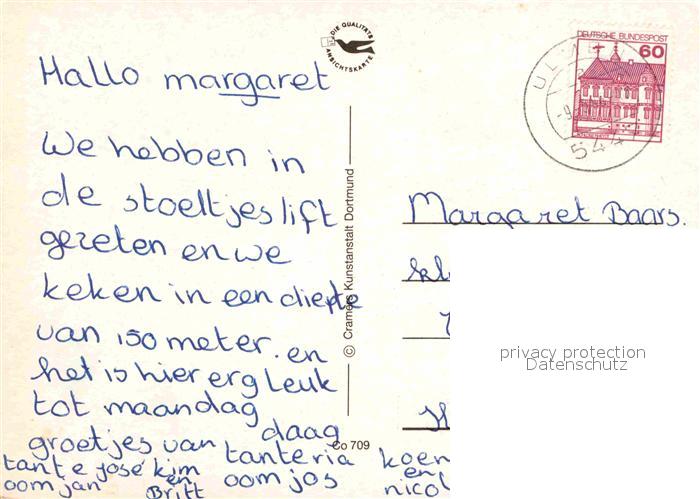 DIE QUALITÄTS
ANSICHTSKARTE
DEUTSCHE BUNDESPOST
60
544
Hallo margaret
We hebben in
de stoeltjeslift
gezeten en we
keken in een diepte
van 150 meter. en
het is hier erg Leuk
tot maandag
daag
groetjes van
tante José kim
en
oom jan Britt
tante ria
oom jos
koen
en
nicol
© Cramers Kunstanstalt Dortmund
Co 709
Margaret Baars.
kl
privacy protection
Datenschutz